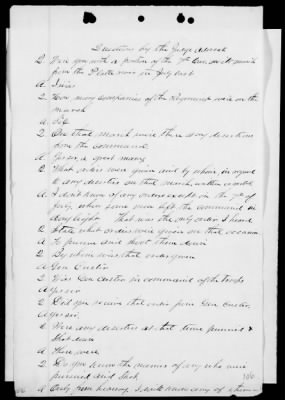 Questions by the Judge Advocate
Q. Were you with a portion of the 7th Cav. on its march
from the Platte river in July last
A. I was
Q. How many companies of the Regiment were on the
march
A. Six
Q. On that march were there any desertions
from the command
A. Yes sir, a great many
Q. What orders were given and by whom, in regard
to any deserters on that march, written or verbal
A. I don't know of any orders except on the 7th of
July, when some men left the command in
day light. That was the only order I heard
Q. State what orders were given on that occasion
A. To pursue and shoot them down
Q. By whom was that order given
A. Gen Custer
Q. Was Gen Custer in command of the troops
A. Yes sir
Q. Did you receive that order from Gen Custer
A. Yes sir.
Q. Were any deserters at that time pursued &
shot down
A. There were
Q. Do you know the names of any who were
pursued and shot
106
A. Only from hearsay, I don't know any of them